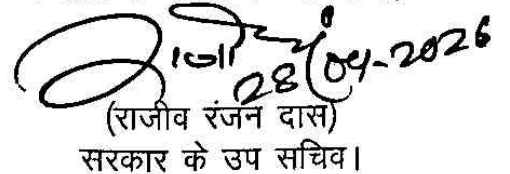 28/04-2026
(राजीव रंजन दास)
सरकार के उप सचिव।